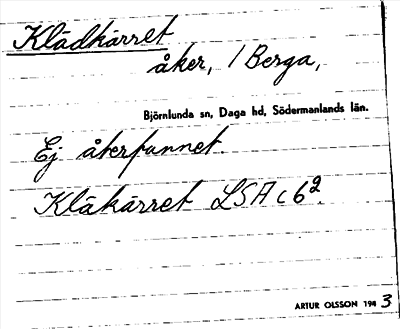 Klädkärret
åker, / Berga,
Björnlunda sn, Daga hd, Södermanlands län.
Ej återfunnet
Kläkärret LSA c 6²
ARTUR OLSSON 1943